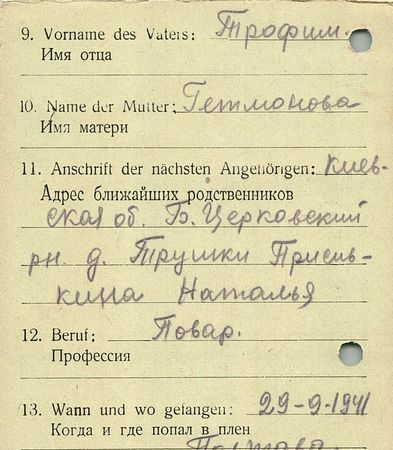 9. Vorname des Vaters: Трофим.
Имя отца
10. Name der Mutter: Гетманова
Имя матери
11. Anschrift der nächsten Angehörigen: Киев-
Адрес ближайших родственников
ская об. Б. Церковский
рн. д. Трушки Присиь-
кина Наталья
12. Beruf: Повар.
Профессия
13. Wann und wo gefangen: 29-9-1941
Когда и где попал в плен
Полтава.